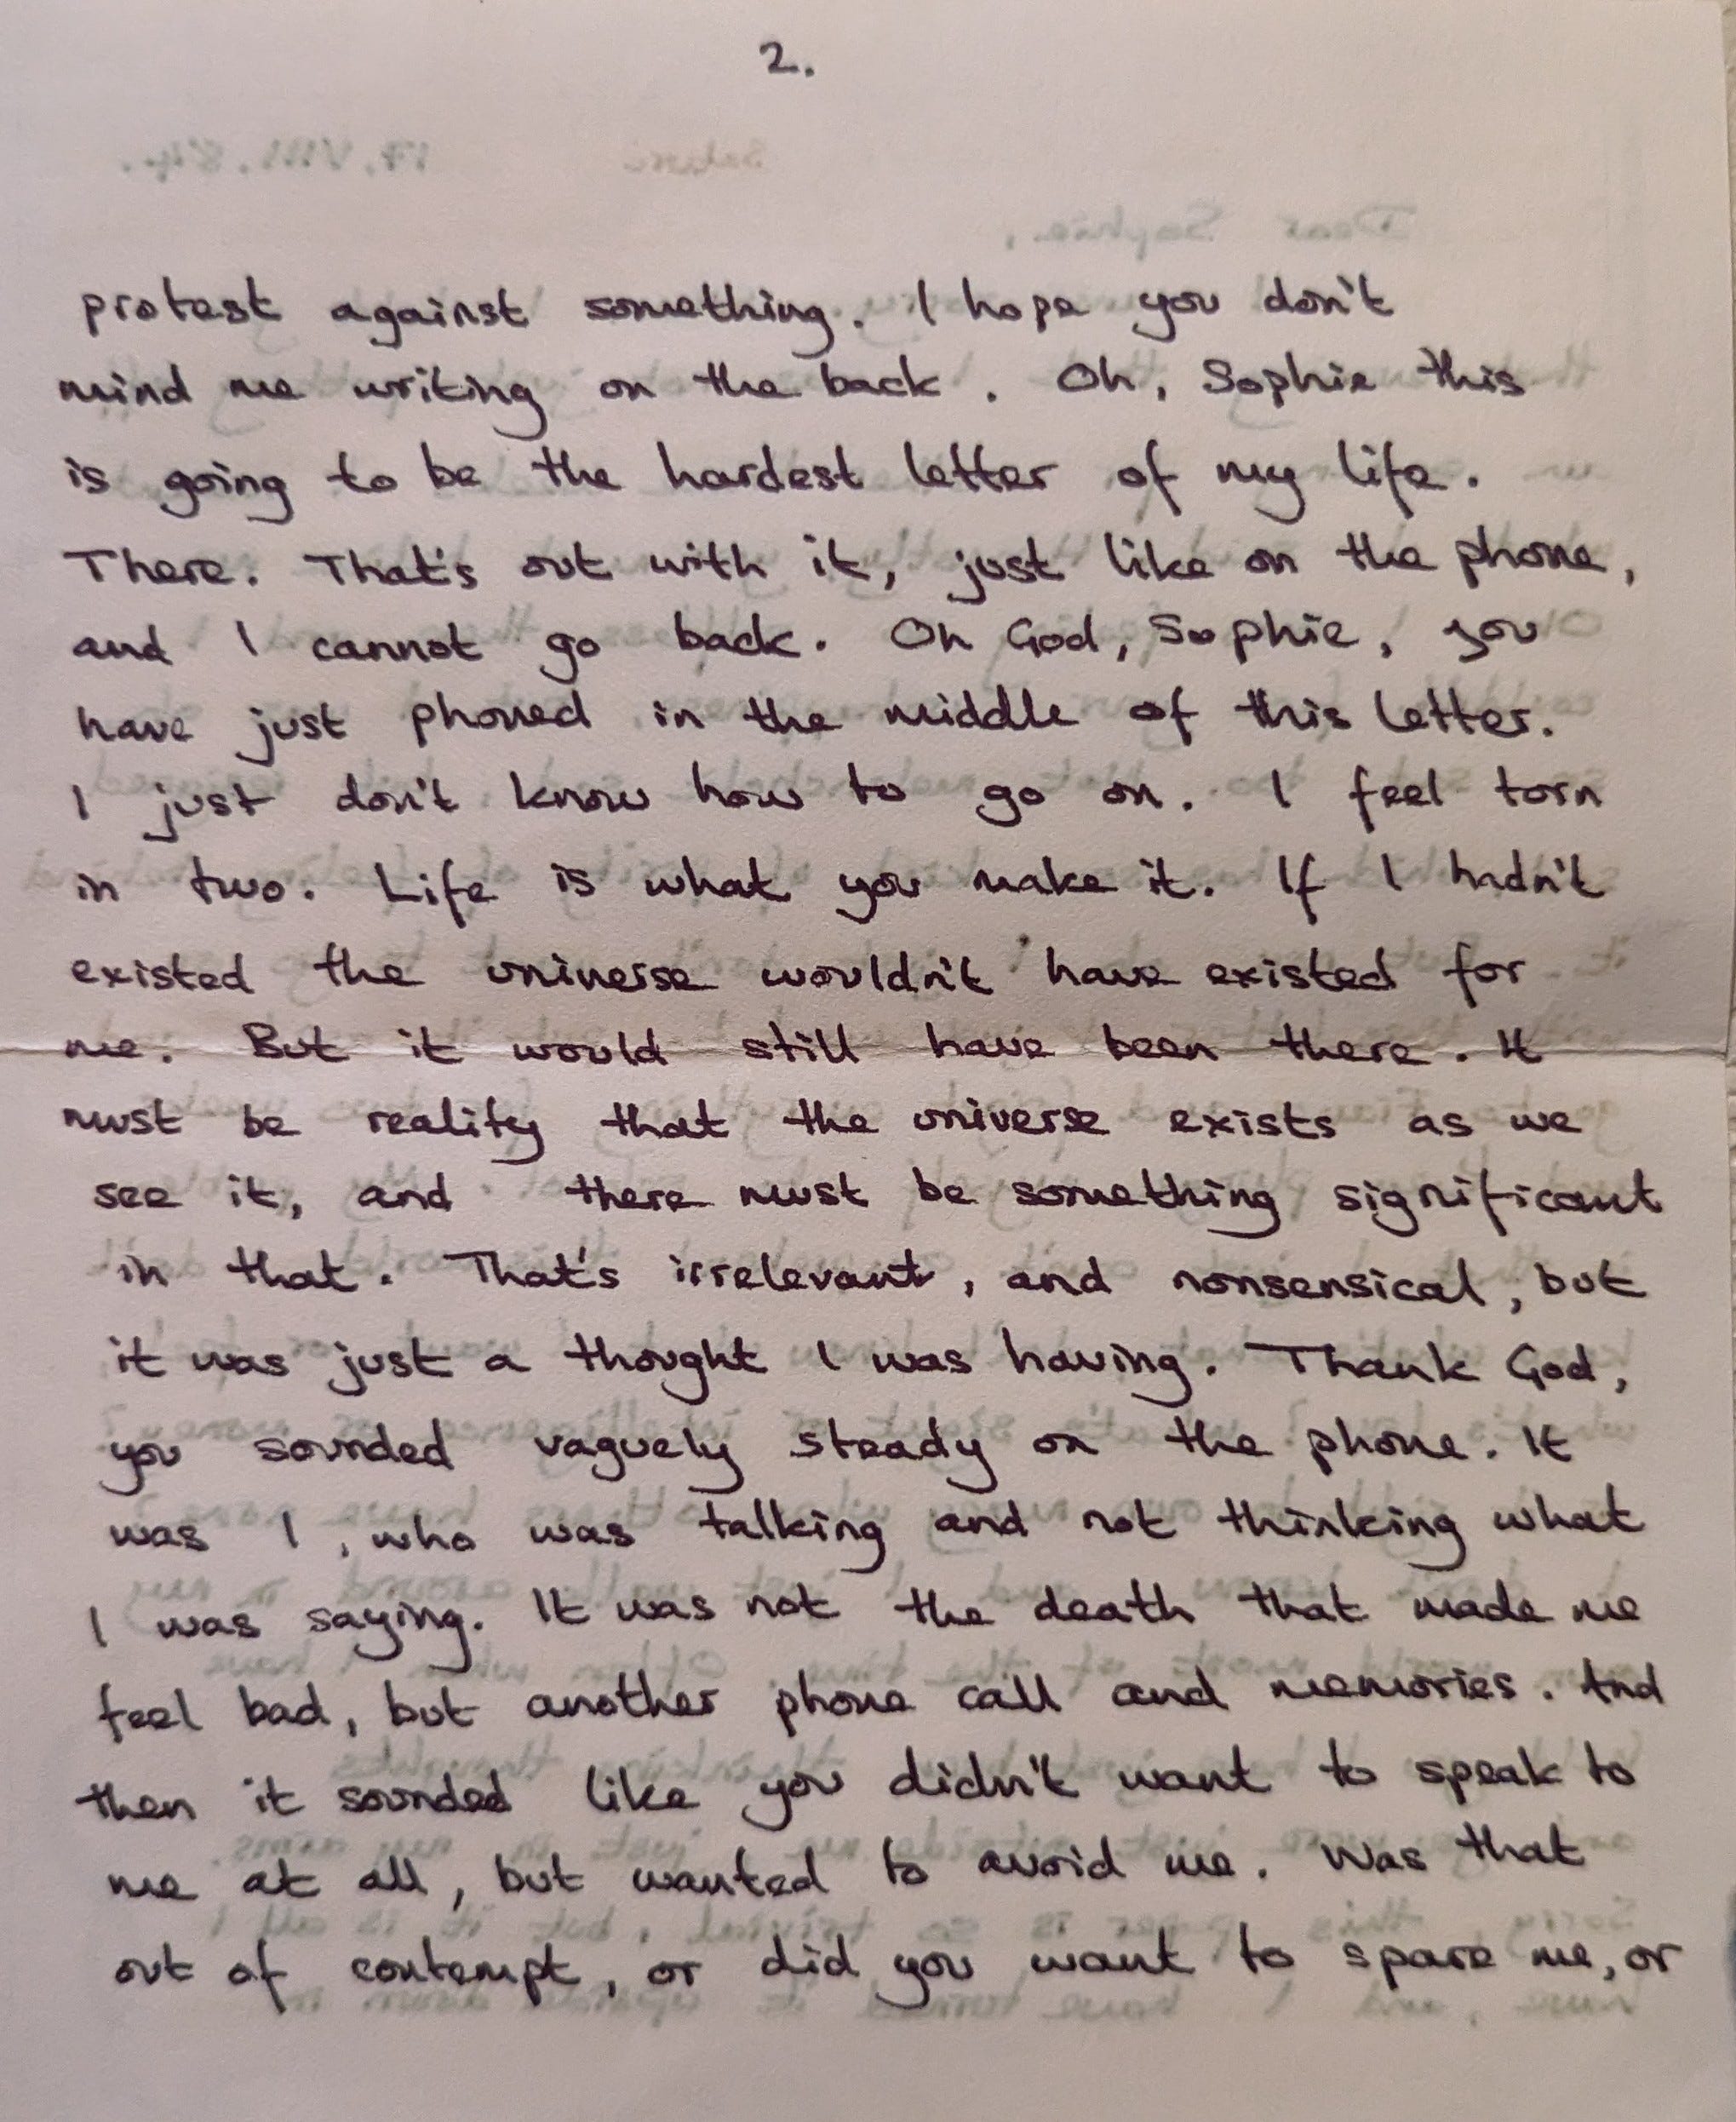 2.
protest against something. I hope you don't
mind me writing on the back. Oh, Sophie this
is going to be the hardest letter of my life.
There. That's out with it, just like on the phone,
and I cannot go back. Oh God, Sophie, you
have just phoned in the middle of this letter.
I just don't know how to go on. I feel torn
in two. Life is what you make it. If I hadn't
existed the universe wouldn't have existed for
me. But it would still have been there. It
must be reality that the universe exists as we
see it, and there must be something significant
in that. That's irrelevant, and nonsensical, but
it was just a thought I was having. Thank God,
you sounded vaguely steady on the phone. It
was I, who was talking and not thinking what
I was saying. It was not the death that made me
feel bad, but another phone call and memories. And
then it sounded like you didn't want to speak to
me at all, but wanted to avoid me. Was that
out of contempt, or did you want to spare me, or